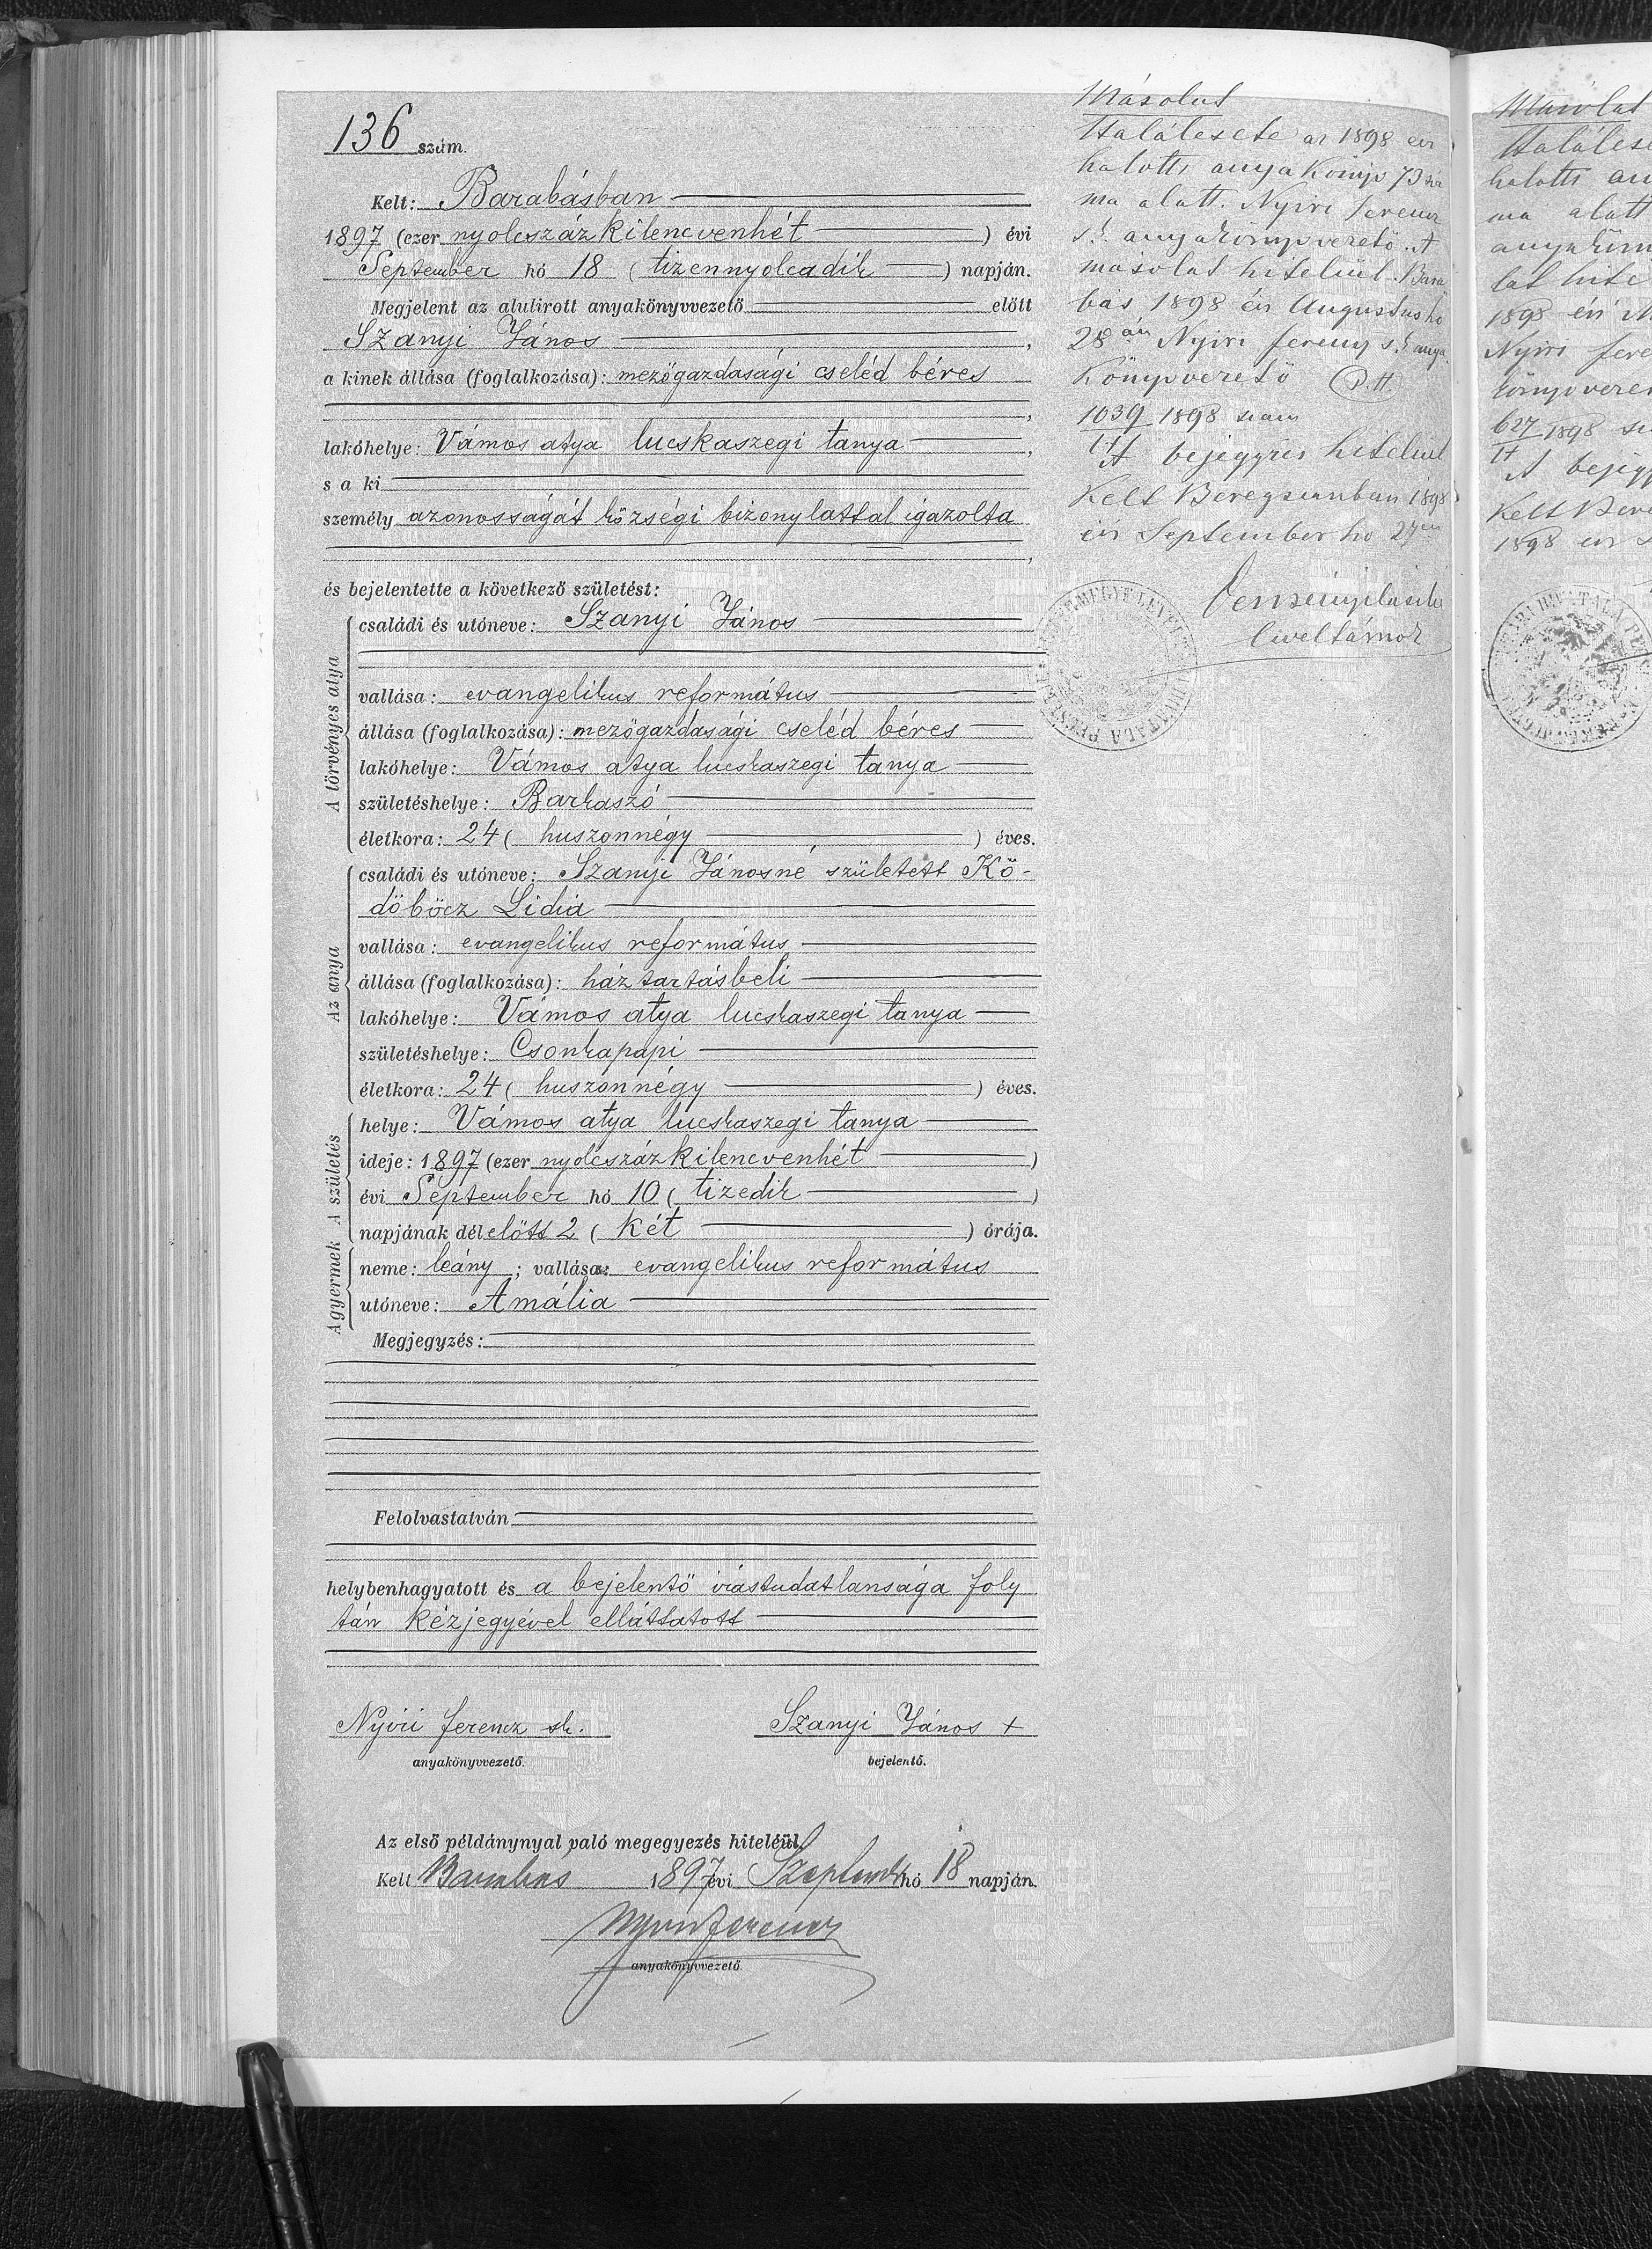 136 szám.
Kelt: Barabásban
1897 (ezer nyolcszázkilencvenhét) évi
September hó 18 (tizennyolcadik) napján.
Megjelent az alulirott anyakönyvvezető előtt
Szanyi János,
a kinek állása (foglalkozása): mezögazdasági cseléd béres
,
lakóhelye: Vámos atya lucskaszegi tanya,
s a ki
személy azonosságát községi bizonylattal igazolta
,
és bejelentette a következő születést:
A törvényes atya
családi és utóneve: Szanyi János
vallása: evangelikus református
állása (foglalkozása): mezögazdasági cseléd béres
lakóhelye: Vámos atya lucskaszegi tanya
születéshelye: Barkaszó
életkora: 24 (huszonnégy) éves.
Az anya
családi és utóneve: Szanyi Jánosné született Kö-
döböcz Lidia
vallása: evangelikus református
állása (foglalkozása): háztartásbeli
lakóhelye: Vámos atya lucskaszegi tanya
születéshelye: Csonkapapi
életkora: 24 (huszonnégy) éves.
A születés
helye: Vámos atya lucskaszegi tanya
ideje: 1897 (ezer nyolcszázkilencvenhét)
évi September hó 10 (tizedik)
napjának délelőtt 2 (két) órája.
A gyermek
neme: leány; vallása: evangelikus református
utóneve: Amália
Megjegyzés:
Felolvastatván
helybenhagyatott és a bejelentö irástudatlansága foly
tán kézjegyével elláttatott
Nyiri Ferencz sk. Szanyi János +
anyakönyvvezető. bejelentő.
Az első példánynyal való megegyezés hiteléül.
Kelt Barabas 1897 évi Szeptember hó 18 napján.
Nyiri Ferencz
anyakönyvvezető
Másolat
Halálesete az 1898 évi
halotti anyakönyv 73 szá
ma alatt. Nyiri Ferencz
s.k. anyakönyvvezető. A
másolat hiteléül. Bara
bás 1898 évi Augustus hó
28 án Nyiri Ferencz s.k. anya
könyvvezető P.H.
1039 1898 szám
A bejegyzés hiteléül
Kelt Beregszászban 1898
évi September hó 27 én
Másolat
Haláles
halotti an
ma alatt
anyakönyv
lat hite
1898 évi
Nyiri Fere
könyvveze
627 1898 sz
A bejegy
Kelt Bere
1898 évi